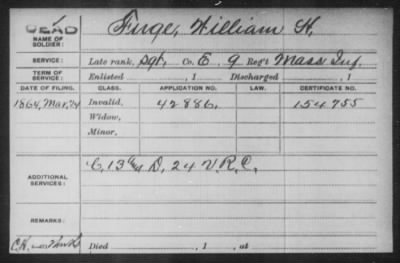 DEAD
NAME OF SOLDIER: Furge, William H.
SERVICE: Late rank, Sgt, Co. E, 9 Reg't Mass Inf.
TERM OF SERVICE: Enlisted , 1 Discharged , 1
DATE OF FILING. CLASS. APPLICATION NO. LAW. CERTIFICATE NO.
1864, Mar, 14 Invalid, 42886, 154755
Widow,
Minor,
ADDITIONAL SERVICES: C, 13 D, 24 V.R.C.
REMARKS:
Died , 1 , at